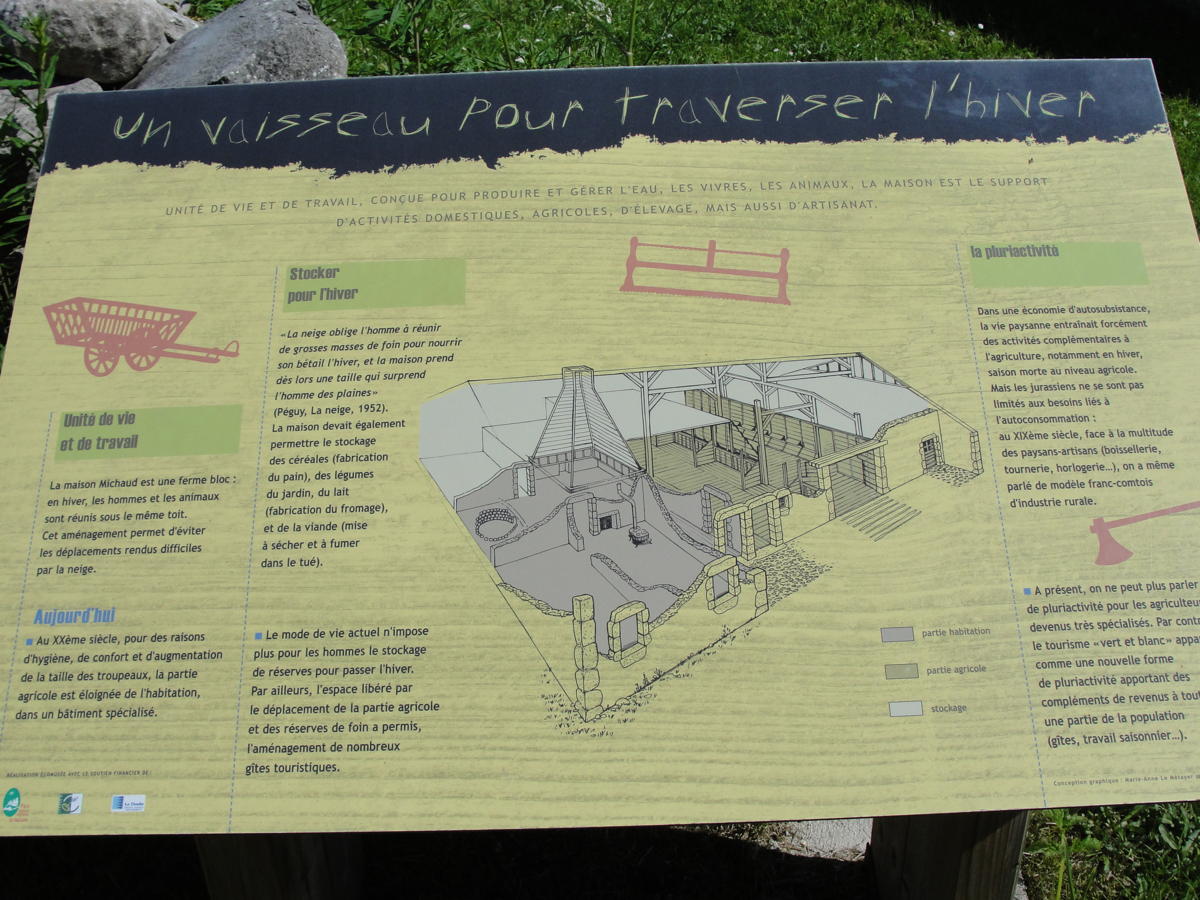 un vaisseau pour traverser l'hiver
UNITÉ DE VIE ET DE TRAVAIL, CONÇUE POUR PRODUIRE ET GÉRER L'EAU, LES VIVRES, LES ANIMAUX, LA MAISON EST LE SUPPORT
D'ACTIVITÉS DOMESTIQUES, AGRICOLES, D'ÉLEVAGE, MAIS AUSSI D'ARTISANAT.
Unité de vie
et de travail
La maison Michaud est une ferme bloc :
en hiver, les hommes et les animaux
sont réunis sous le même toit.
Cet aménagement permet d'éviter
les déplacements rendus difficiles
par la neige.
Aujourd'hui
Au XXème siècle, pour des raisons
d'hygiène, de confort et d'augmentation
de la taille des troupeaux, la partie
agricole est éloignée de l'habitation,
dans un bâtiment spécialisé.
RÉALISATION ÉCOMUSÉE AVEC LE SOUTIEN FINANCIER DE :
Stocker
pour l'hiver
«La neige oblige l'homme à réunir
de grosses masses de foin pour nourrir
son bétail l'hiver, et la maison prend
dès lors une taille qui surprend
l'homme des plaines»
(Péguy, La neige, 1952).
La maison devait également
permettre le stockage
des céréales (fabrication
du pain), des légumes
du jardin, du lait
(fabrication du fromage),
et de la viande (mise
à sécher et à fumer
dans le tué).
Le mode de vie actuel n'impose
plus pour les hommes le stockage
de réserves pour passer l'hiver.
Par ailleurs, l'espace libéré par
le déplacement de la partie agricole
et des réserves de foin a permis,
l'aménagement de nombreux
gîtes touristiques.
partie habitation
partie agricole
stockage
la pluriactivité
Dans une économie d'autosubsistance,
la vie paysanne entraînait forcément
des activités complémentaires à
l'agriculture, notamment en hiver,
saison morte au niveau agricole.
Mais les jurassiens ne se sont pas
limités aux besoins liés à
l'autoconsommation :
au XIXème siècle, face à la multitude
des paysans-artisans (boissellerie,
tournerie, horlogerie...), on a même
parlé de modèle franc-comtois
d'industrie rurale.
A présent, on ne peut plus parler
de pluriactivité pour les agriculteu
devenus très spécialisés. Par contr
le tourisme «vert et blanc» appa
comme une nouvelle forme
de pluriactivité apportant des
compléments de revenus à tout
une partie de la population
(gîtes, travail saisonnier...).
Conception graphique : Marie-Anne Le Métayer